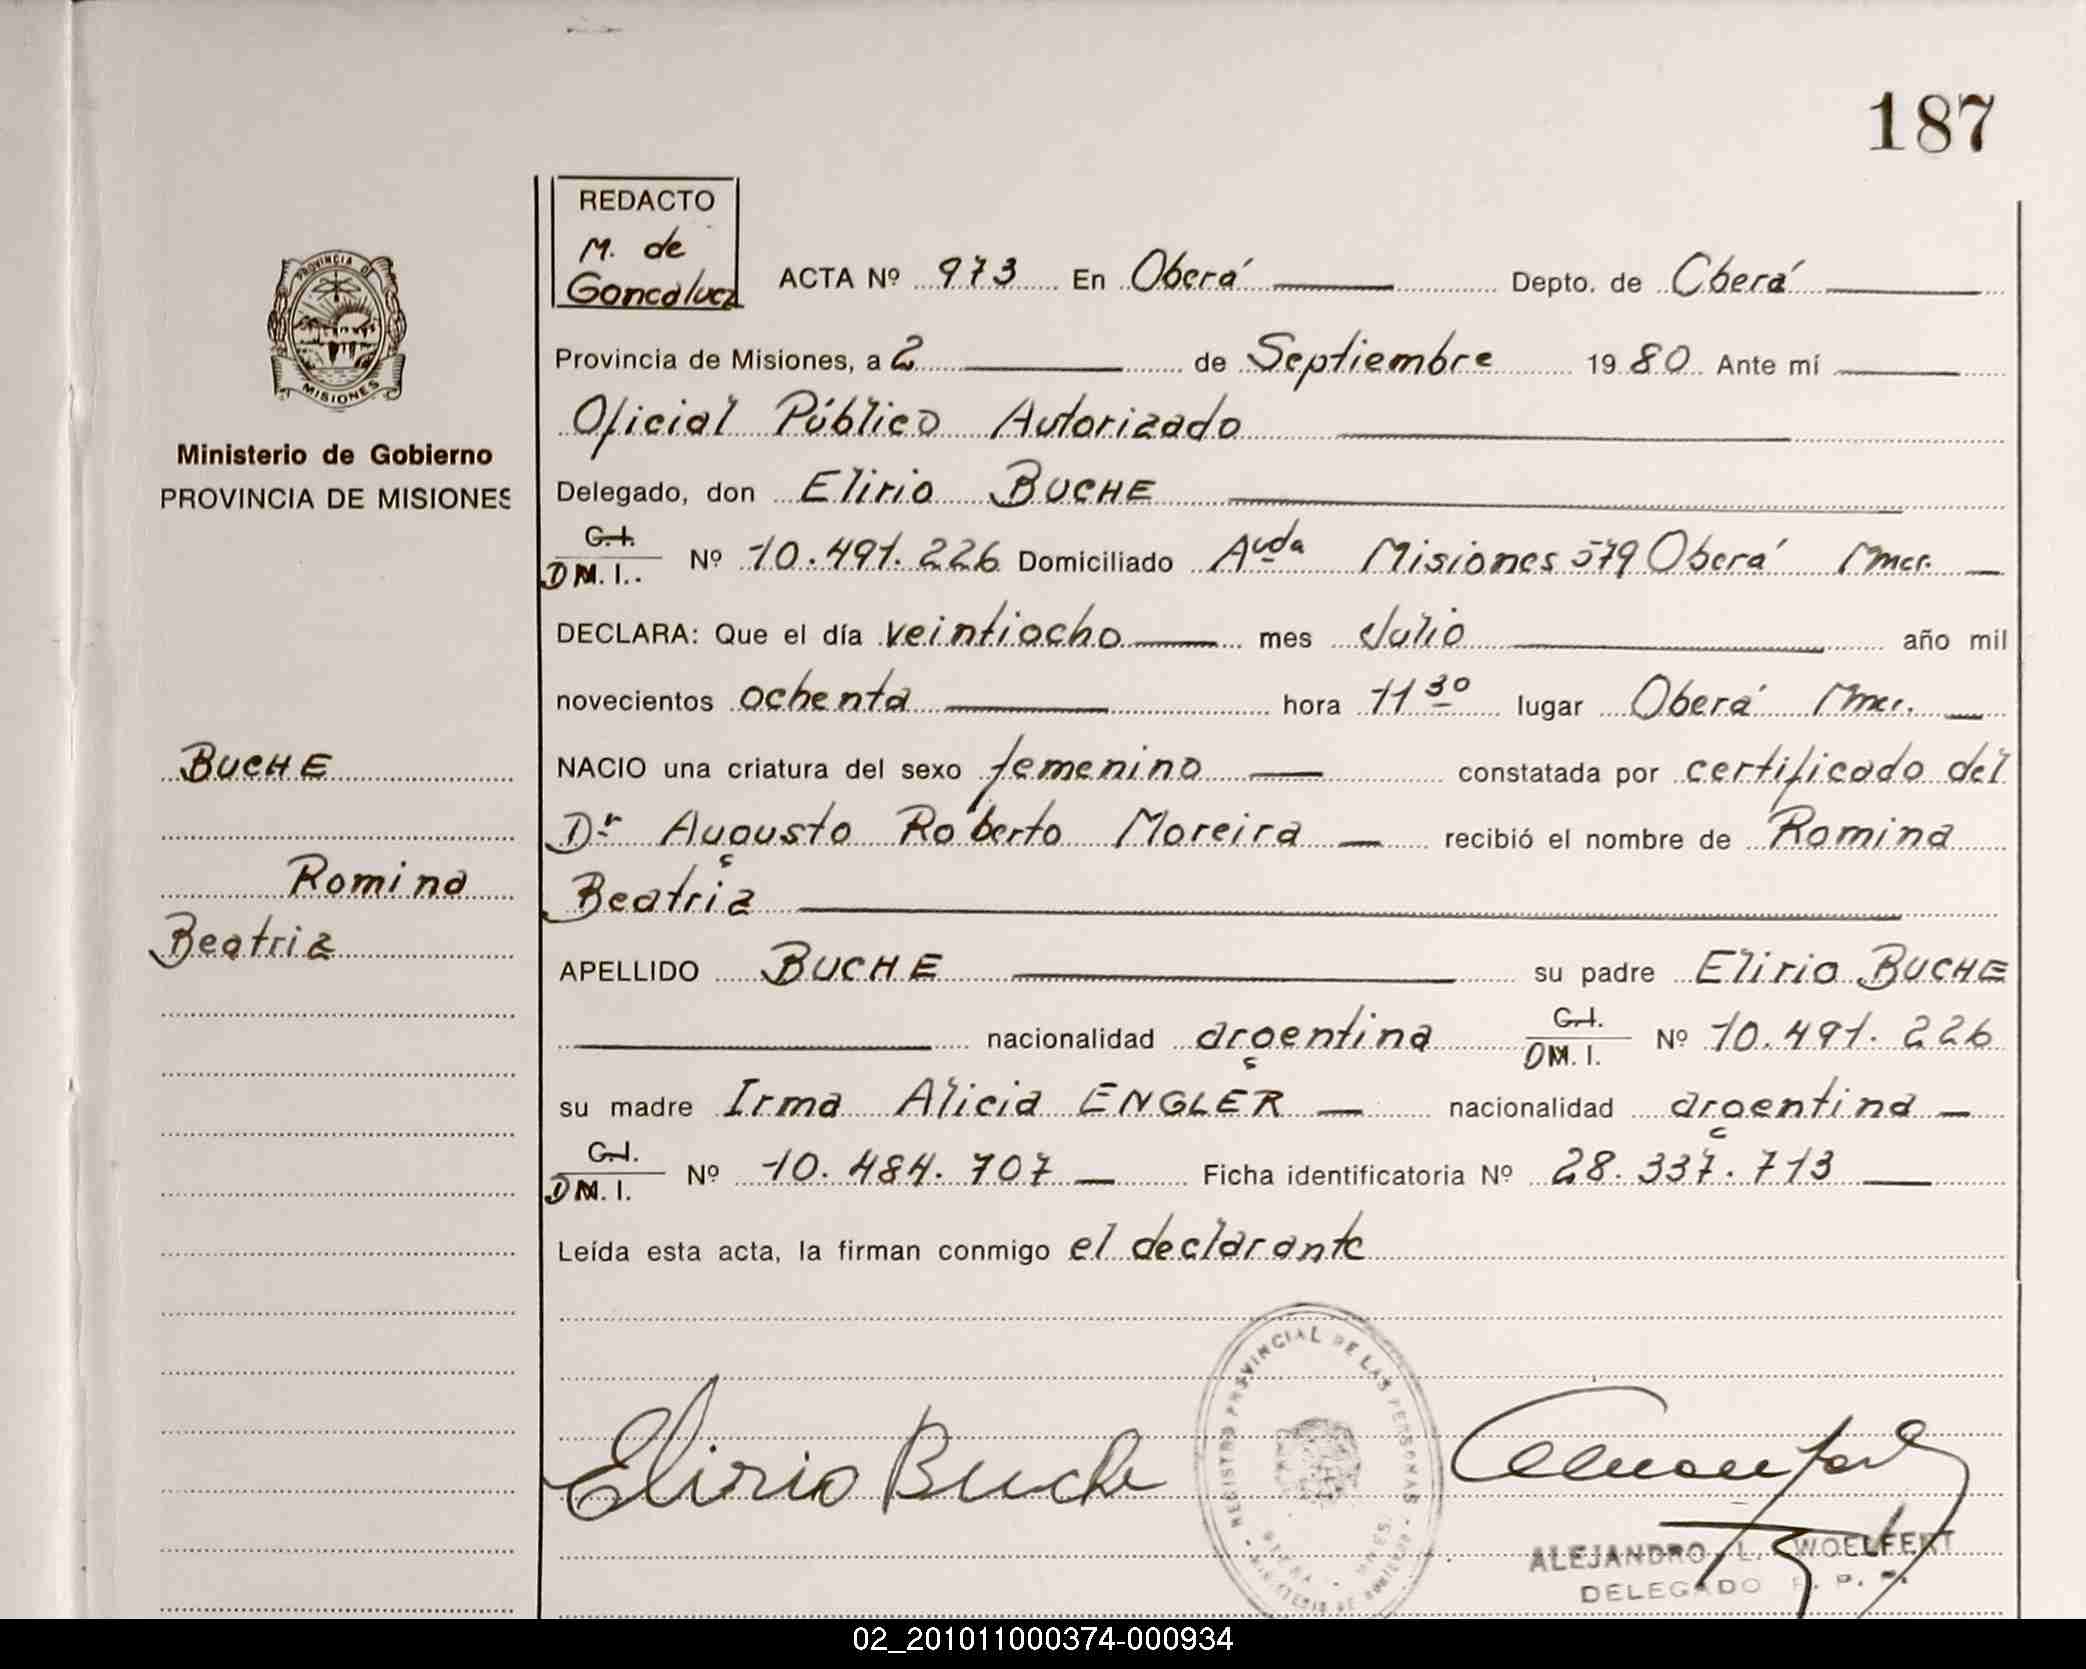 187
REDACTO
M. de
Goncalvez
ACTA Nº 973 En Oberá Depto. de Oberá
Provincia de Misiones, a 2 de Septiembre 1980 Ante mí
Oficial Público Autorizado
PROVINCIA DE
MISIONES
Ministerio de Gobierno
PROVINCIA DE MISIONES
Delegado, don Elirio BUCHE
C.I.
D M. I. Nº 10.491.226 Domiciliado Avda Misiones 579 Oberá Mnes.
DECLARA: Que el día veintiocho mes Julio año mil
novecientos ochenta hora 11 30 lugar Oberá Mnes.
BUCHE
Romina
Beatriz
NACIO una criatura del sexo femenino constatada por certificado del
Dr Augusto Roberto Moreira recibió el nombre de Romina
Beatriz
APELLIDO BUCHE su padre Elirio BUCHE
nacionalidad argentina C.I. D M. I. Nº 10.491.226
su madre Irma Alicia ENGLER nacionalidad argentina
C.I.
D M. I. Nº 10.484.707 Ficha identificatoria Nº 28.337.713
Leída esta acta, la firman conmigo el declarante
Elirio Buche
REGISTRO PROVINCIAL DE LAS PERSONAS
MINISTERIO DE GOBIERNO
ALEJANDRO L. WOELFERT
DELEGADO
02_201011000374-000934